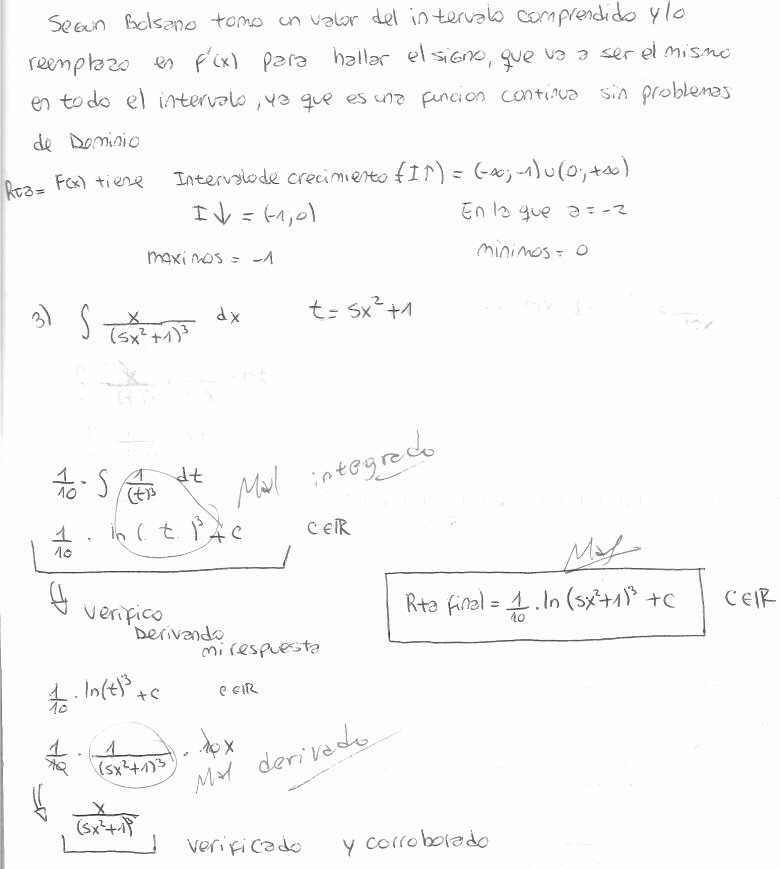 Según Bolsano tomo un valor del intervalo comprendido y lo
reemplazo en f'(x) para hallar el signo, que va a ser el mismo
en todo el intervalo, ya que es una funcion continua sin problemas
de Dominio
Rta= F(x) tiene Intervalo de crecimiento {I↑} = (-∞; -1) ∪ (0; +∞)
I↓ = (-1, 0) En la que a = -2
maximos = -1 minimos = 0
3) ∫ x/(5x²+1)³ dx t = 5x²+1
1/10 · ∫ 1/(t)³ dt Mal integrado
1/10 · ln(t)³ + c C ∈ IR
Mal
Rta final = 1/10 . ln (5x²+1)³ + c C ∈ IR
⇓ verifico
Derivando
mi respuesta
1/10 . ln(t)³ + c c ∈ IR
1/10 . 1/(5x²+1)³ . 10x Mal derivado
⇓ x/(5x²+1)³ verificado y corroborado